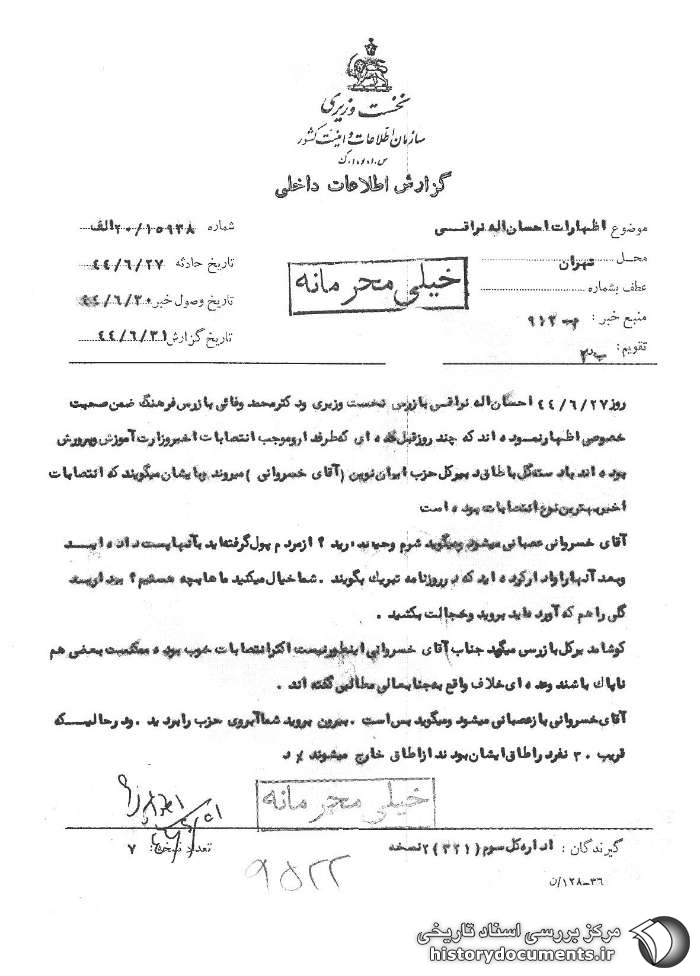 نخست وزیری
سازمان اطلاعات و امنیت کشور
س.ا.و.ا.ک
گزارش اطلاعات داخلی
موضوع اظهارات احسان اله نراقی
محل تهران
عطف بشماره
منبع خبر : ۹۱۲
تقویم:
شماره ۲۰/۱۵۹۳۸الف
تاریخ حادثه ۴۴/۶/۲۷
تاریخ وصول خبر ۴۴/۶/۳۰
تاریخ گزارش ۴۴/۶/۳۱
خیلی محرمانه
روز ۴۴/۶/۲۷ احسان اله نراقی بازرس نخست وزیری و دکترمحمد وفائی بازرس فرهنگ ضمن صحبت
خصوصی اظهارنموده اند که چند روزقبل عده ای که طرفدار وموجب انتصابات اخیروزارت آموزش وپرورش
بوده اند باد سته گل باطاق دبیرکل حزب ایران نوین (آقای خسروانی) میروند وبایشان میگویند که انتصابات
اخیربهترین نوع انتصابات بوده است
آقای خسروانی عصبانی میشود ومیگوید شرم وحیاندارید ؟ ازمردم پول گرفته اید بآنهاپست داده اید
وبعد آنهاراوادارکرده اید که درروزنامه تبریک بگویند . شماخیال میکنید مابابچه هستیم؟
گلی راهم که آورده اید بروید وخجالت بکشید .
مدیرکل بازرسی میگوید جناب آقای خسروانی اینطورنیست اکثرانتصابات خوب بوده ممکنست بعضی هم
ناپاک باشند وعده ای خلاف واقع به جنابعالی مطالبی گفته اند .
آقای خسروانی بازعصبانی میشود ومیگوید بس است . بیرون بروید شماآبروی حزب رابردید . ودرحالیکه
قریب ۳۰ نفردراطاق ایشان بودند ازاطاق خارج میشوند / د
خیلی محرمانه
گیرندگان : اداره کل سوم (۳۲۱) ۲نسخه
تعداد نسخه: ۷
۳۶-۱۲۸/ن
۹۵۲۲
مرکز بررسی اسناد تاریخی
historydocuments.ir